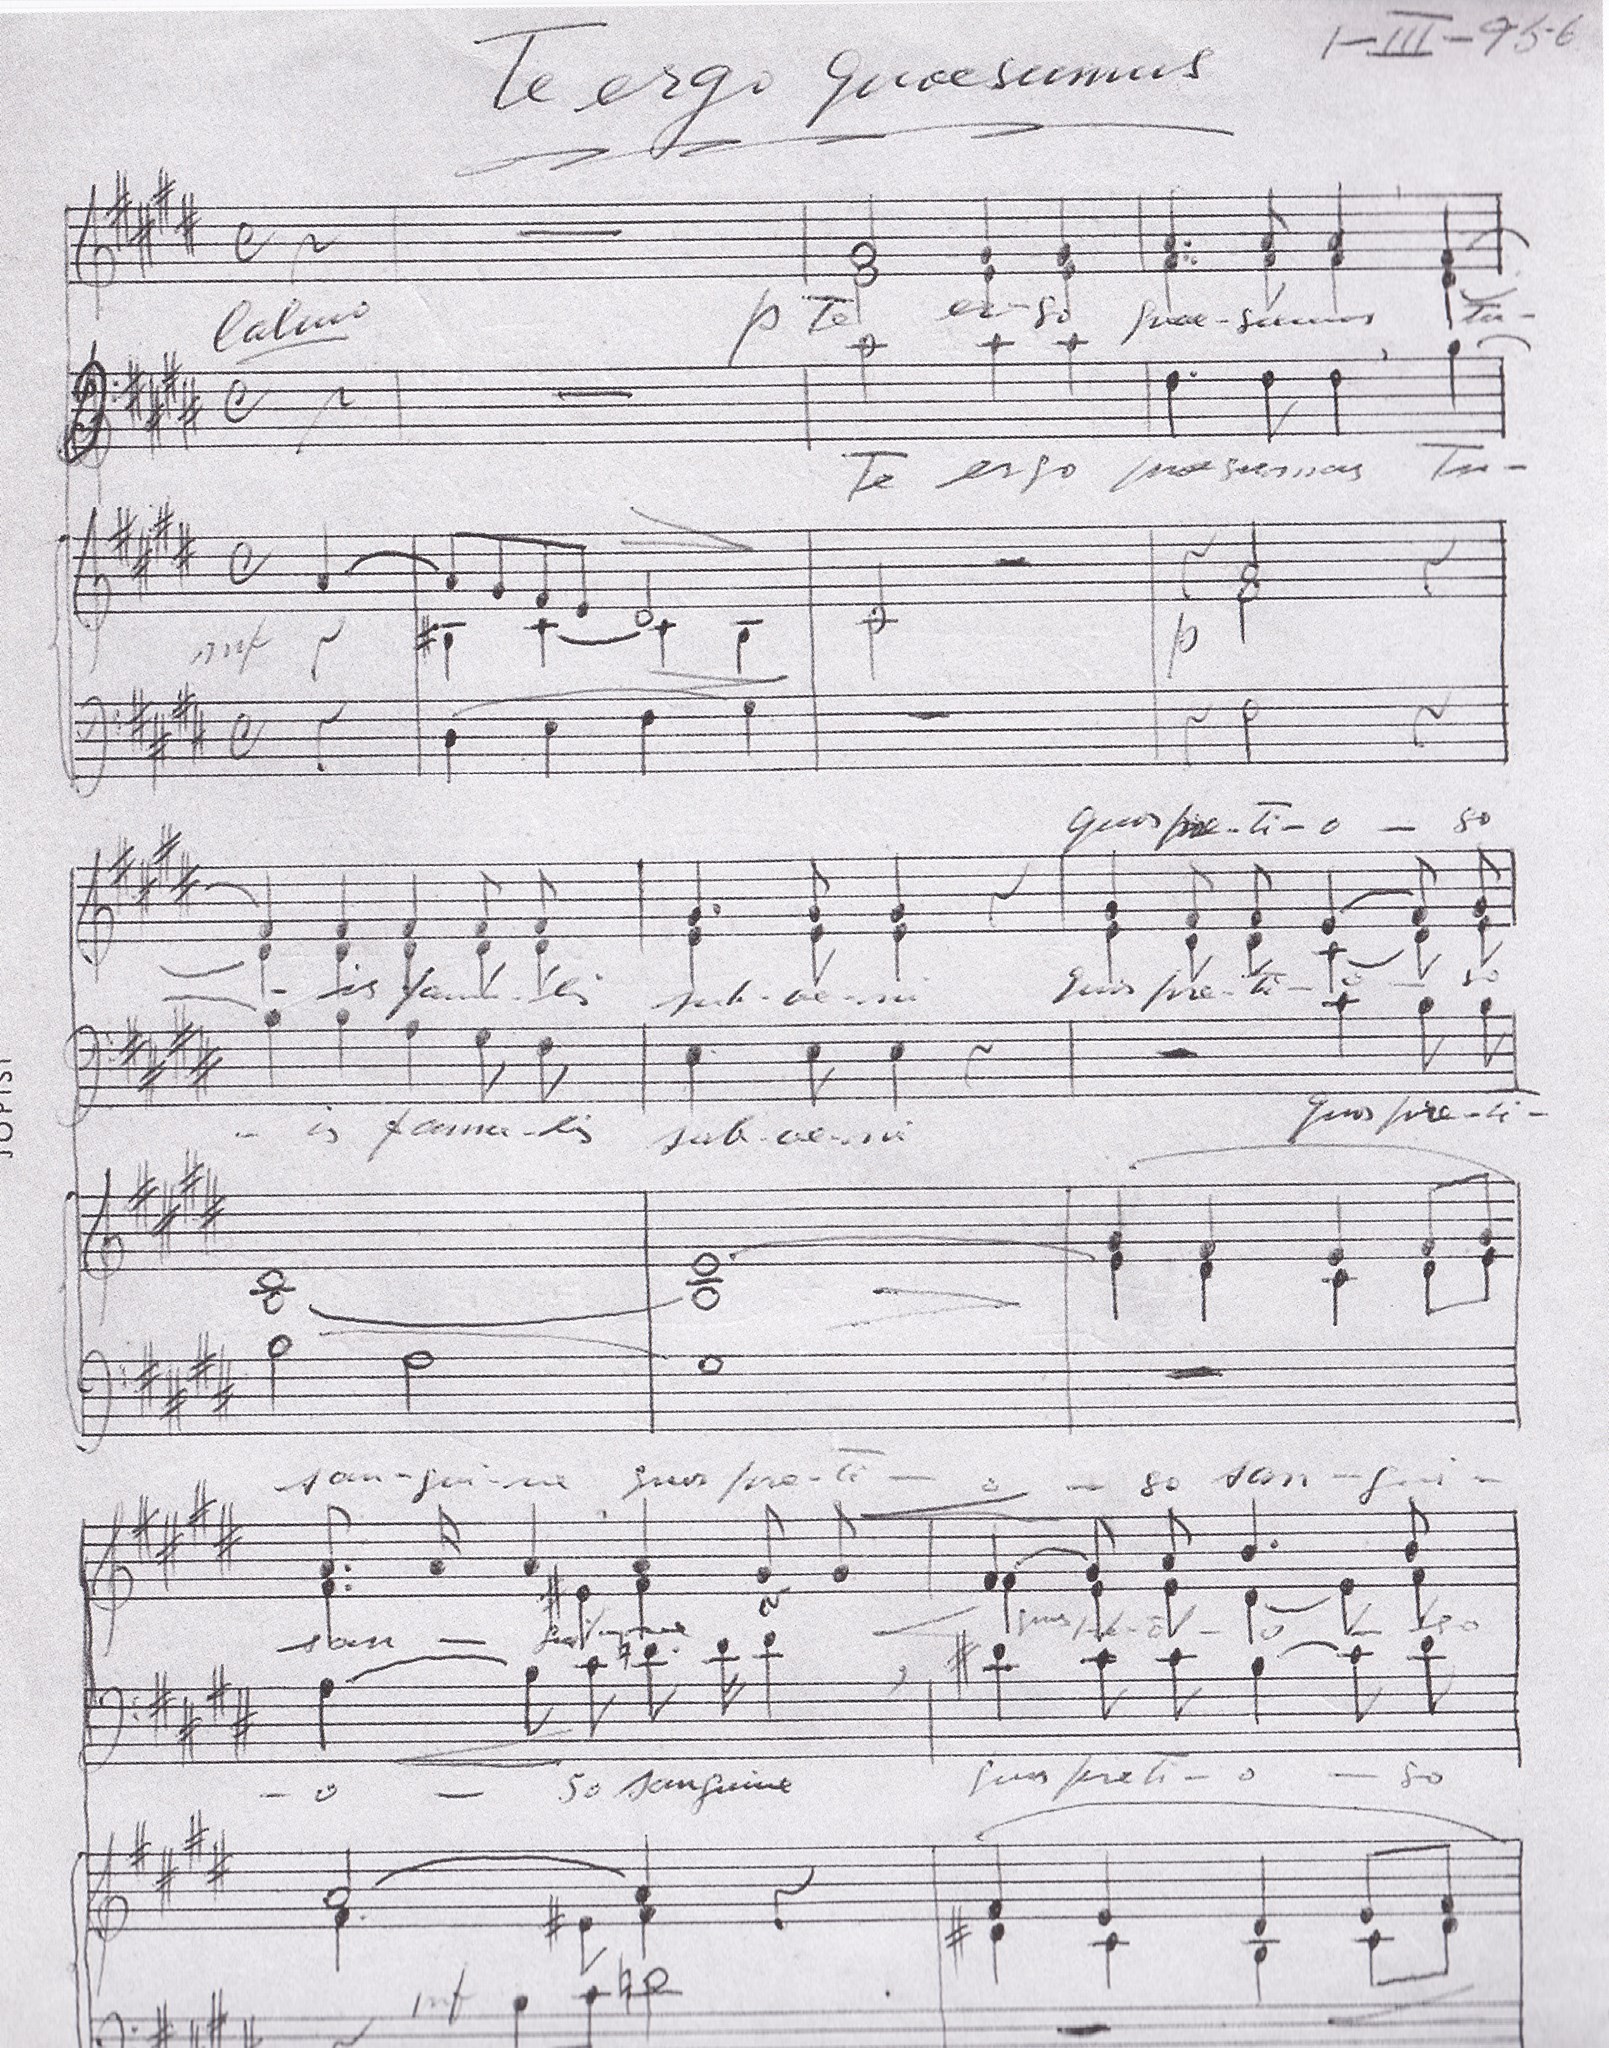 1-III-956
Te ergo quaesumus
Calmo
p Te er-go quae-sumus tu-
Te ergo quaesumus Tu-
mf
p
quos pre-ti-o - so
- is famu-lis sub-ve-ni quos pre-ti-o - so
- is famu-lis sub-ve-ni quos pre-ti-
san-gui-ne quos pre-ti - o - so san-gui-
san - gui-ne quos pre-ti - o - so
- o - so sanguine quos preti-o - so
mf